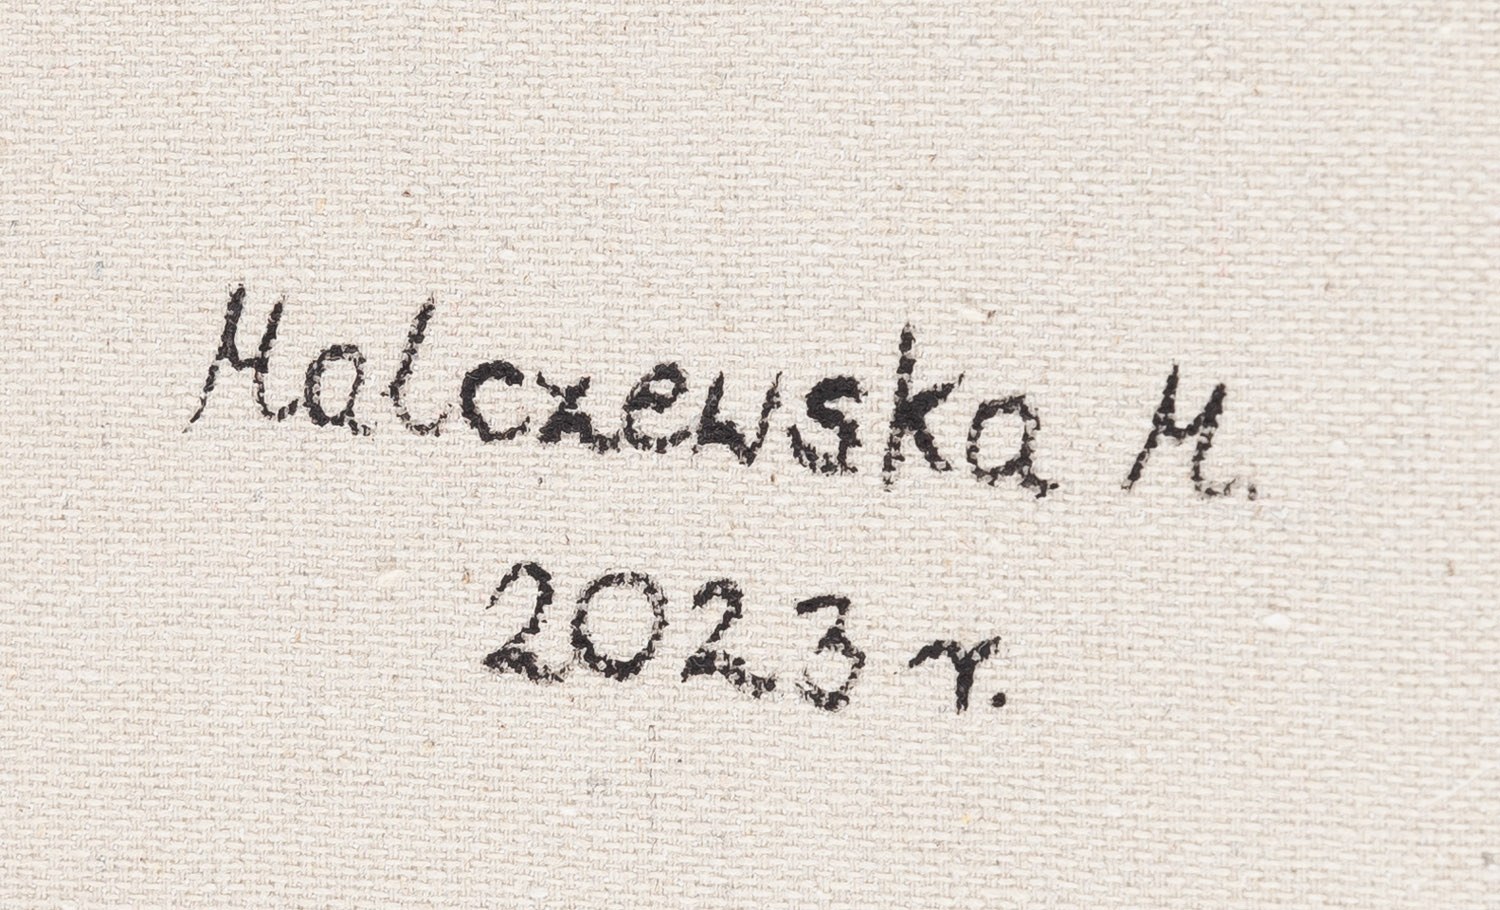 Malczewska M.
2023 r.